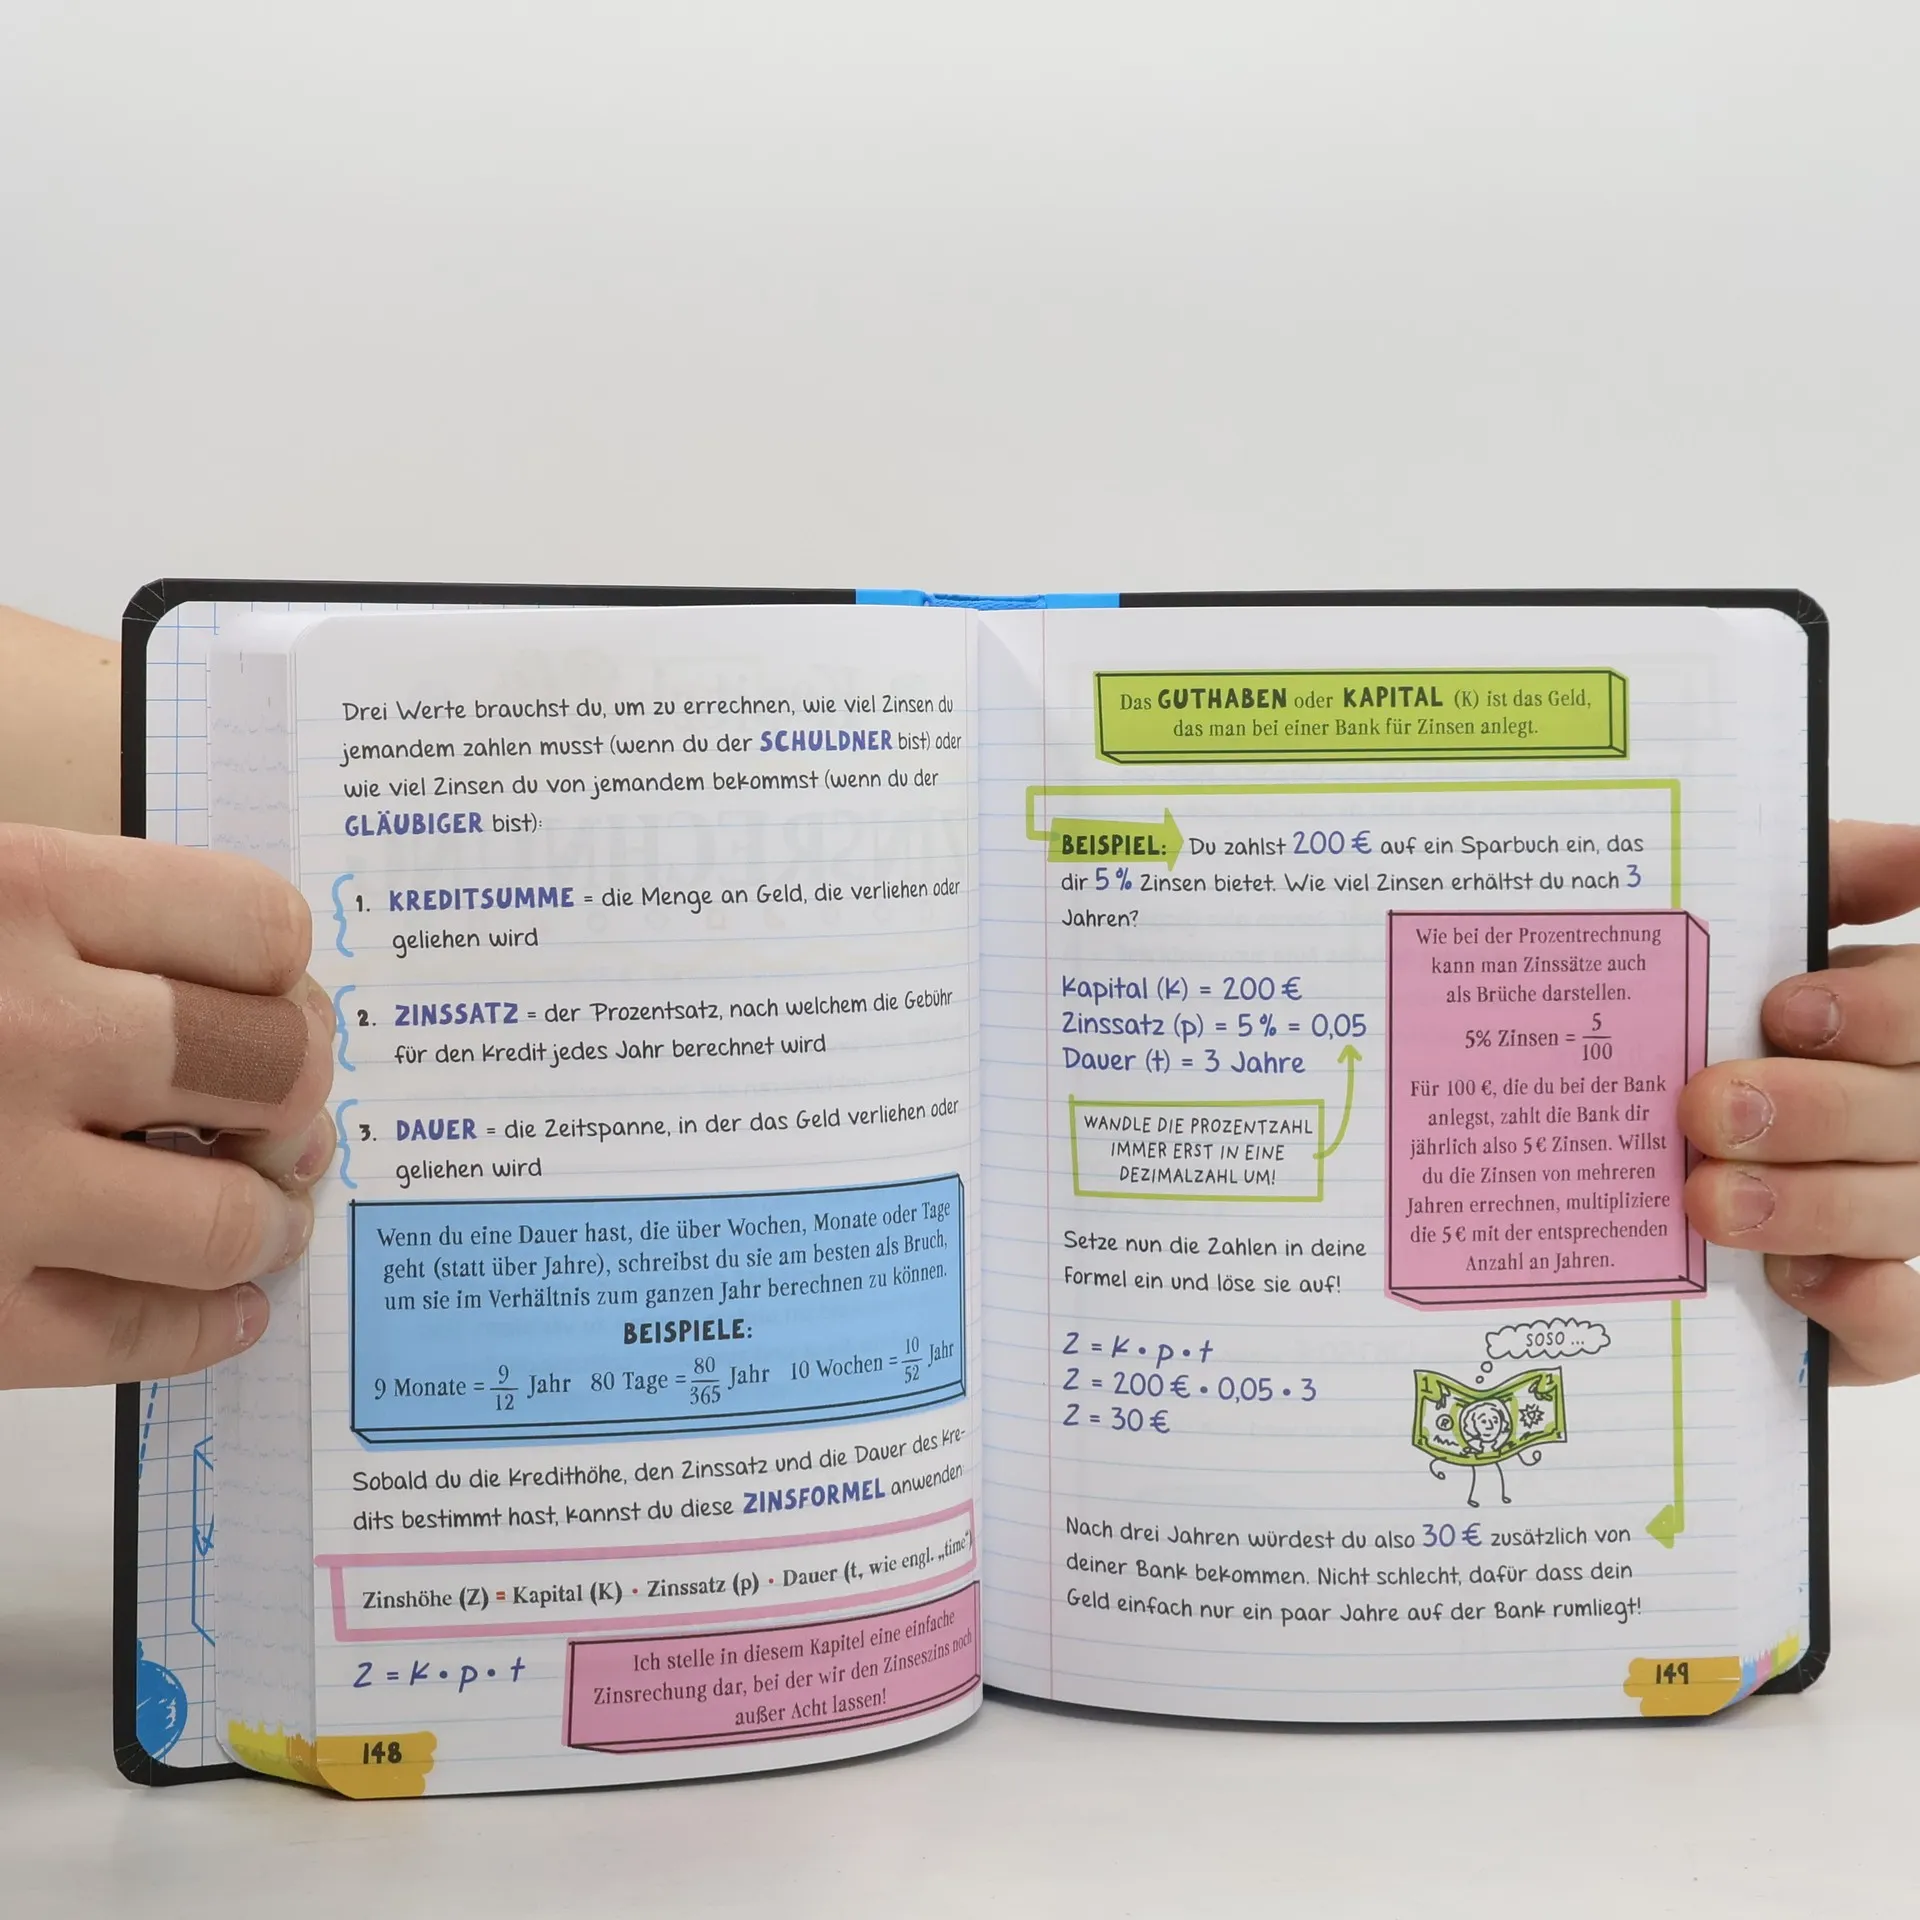 Drei Werte brauchst du, um zu errechnen, wie viel Zinsen du
jemandem zahlen musst (wenn du der SCHULDNER bist) oder
wie viel Zinsen du von jemandem bekommst (wenn du der
GLÄUBIGER bist):
1. KREDITSUMME = die Menge an Geld, die verliehen oder
geliehen wird
2. ZINSSATZ = der Prozentsatz, nach welchem die Gebühr
für den Kredit jedes Jahr berechnet wird
3. DAUER = die Zeitspanne, in der das Geld verliehen oder
geliehen wird
Wenn du eine Dauer hast, die über Wochen, Monate oder Tage
geht (statt über Jahre), schreibst du sie am besten als Bruch,
um sie im Verhältnis zum ganzen Jahr berechnen zu können.
BEISPIELE:
9 Monate = 9/12 Jahr 80 Tage = 80/365 Jahr 10 Wochen = 10/52 Jahr
Sobald du die Kredithöhe, den Zinssatz und die Dauer des Kre-
dits bestimmt hast, kannst du diese ZINSFORMEL anwenden
Zinshöhe (Z) = Kapital (K) · Zinssatz (p) · Dauer (t, wie engl. „time“)
Z = K · p · t
Ich stelle in diesem Kapitel eine einfache
Zinsrechung dar, bei der wir den Zinseszins noch
außer Acht lassen!
148
Das GUTHABEN oder KAPITAL (K) ist das Geld,
das man bei einer Bank für Zinsen anlegt.
BEISPIEL: Du zahlst 200 € auf ein Sparbuch ein, das
dir 5 % Zinsen bietet. Wie viel Zinsen erhältst du nach 3
Jahren?
Kapital (K) = 200 €
Zinssatz (p) = 5 % = 0,05
Dauer (t) = 3 Jahre
WANDLE DIE PROZENTZAHL
IMMER ERST IN EINE
DEZIMALZAHL UM!
Wie bei der Prozentrechnung
kann man Zinssätze auch
als Brüche darstellen.
5% Zinsen = 5/100
Für 100 €, die du bei der Bank
anlegst, zahlt die Bank dir
jährlich also 5 € Zinsen. Willst
du die Zinsen von mehreren
Jahren errechnen, multipliziere
die 5 € mit der entsprechenden
Anzahl an Jahren.
Setze nun die Zahlen in deine
Formel ein und löse sie auf!
Z = K · p · t
Z = 200 € · 0,05 · 3
Z = 30 €
SOSO ...
1
Nach drei Jahren würdest du also 30 € zusätzlich von
deiner Bank bekommen. Nicht schlecht, dafür dass dein
Geld einfach nur ein paar Jahre auf der Bank rumliegt!
149